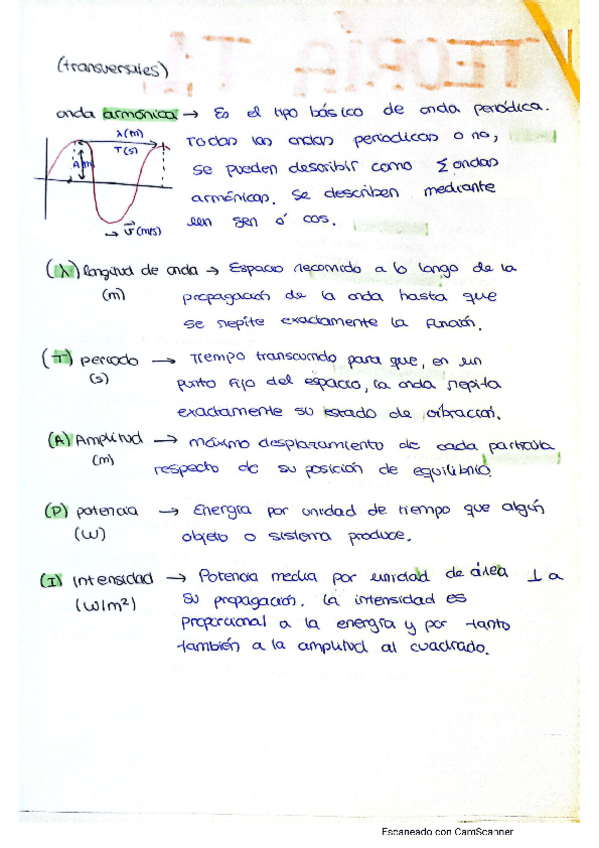 (transversales)
onda armónica → Es el tipo básico de onda periódica.
λ(m)
T(s)
A(m)
→ v⃗ (m/s)
Todas las ondas periodicas o no,
se pueden describir como Σ ondas
armónicas. Se describen mediante
sen ó cos.
(λ) longitud de onda → Espacio recorrido a lo largo de la
(m) propagación de la onda hasta que
se repite exactamente la función.
(T) periodo → Tiempo transcurrido para que, en un
(s) punto fijo del espacio, la onda repita
exactamente su estado de vibración.
(A) Amplitud → máximo desplazamiento de cada partícula
(m) respecto de su posición de equilibrio.
(P) potencia → Energía por unidad de tiempo que algún
(W) objeto o sistema produce.
(I) Intensidad → Potencia media por unidad de área ⊥ a
(W/m²) su propagación. La intensidad es
proporcional a la energía y por tanto
también a la amplitud al cuadrado.
Escaneado con CamScanner